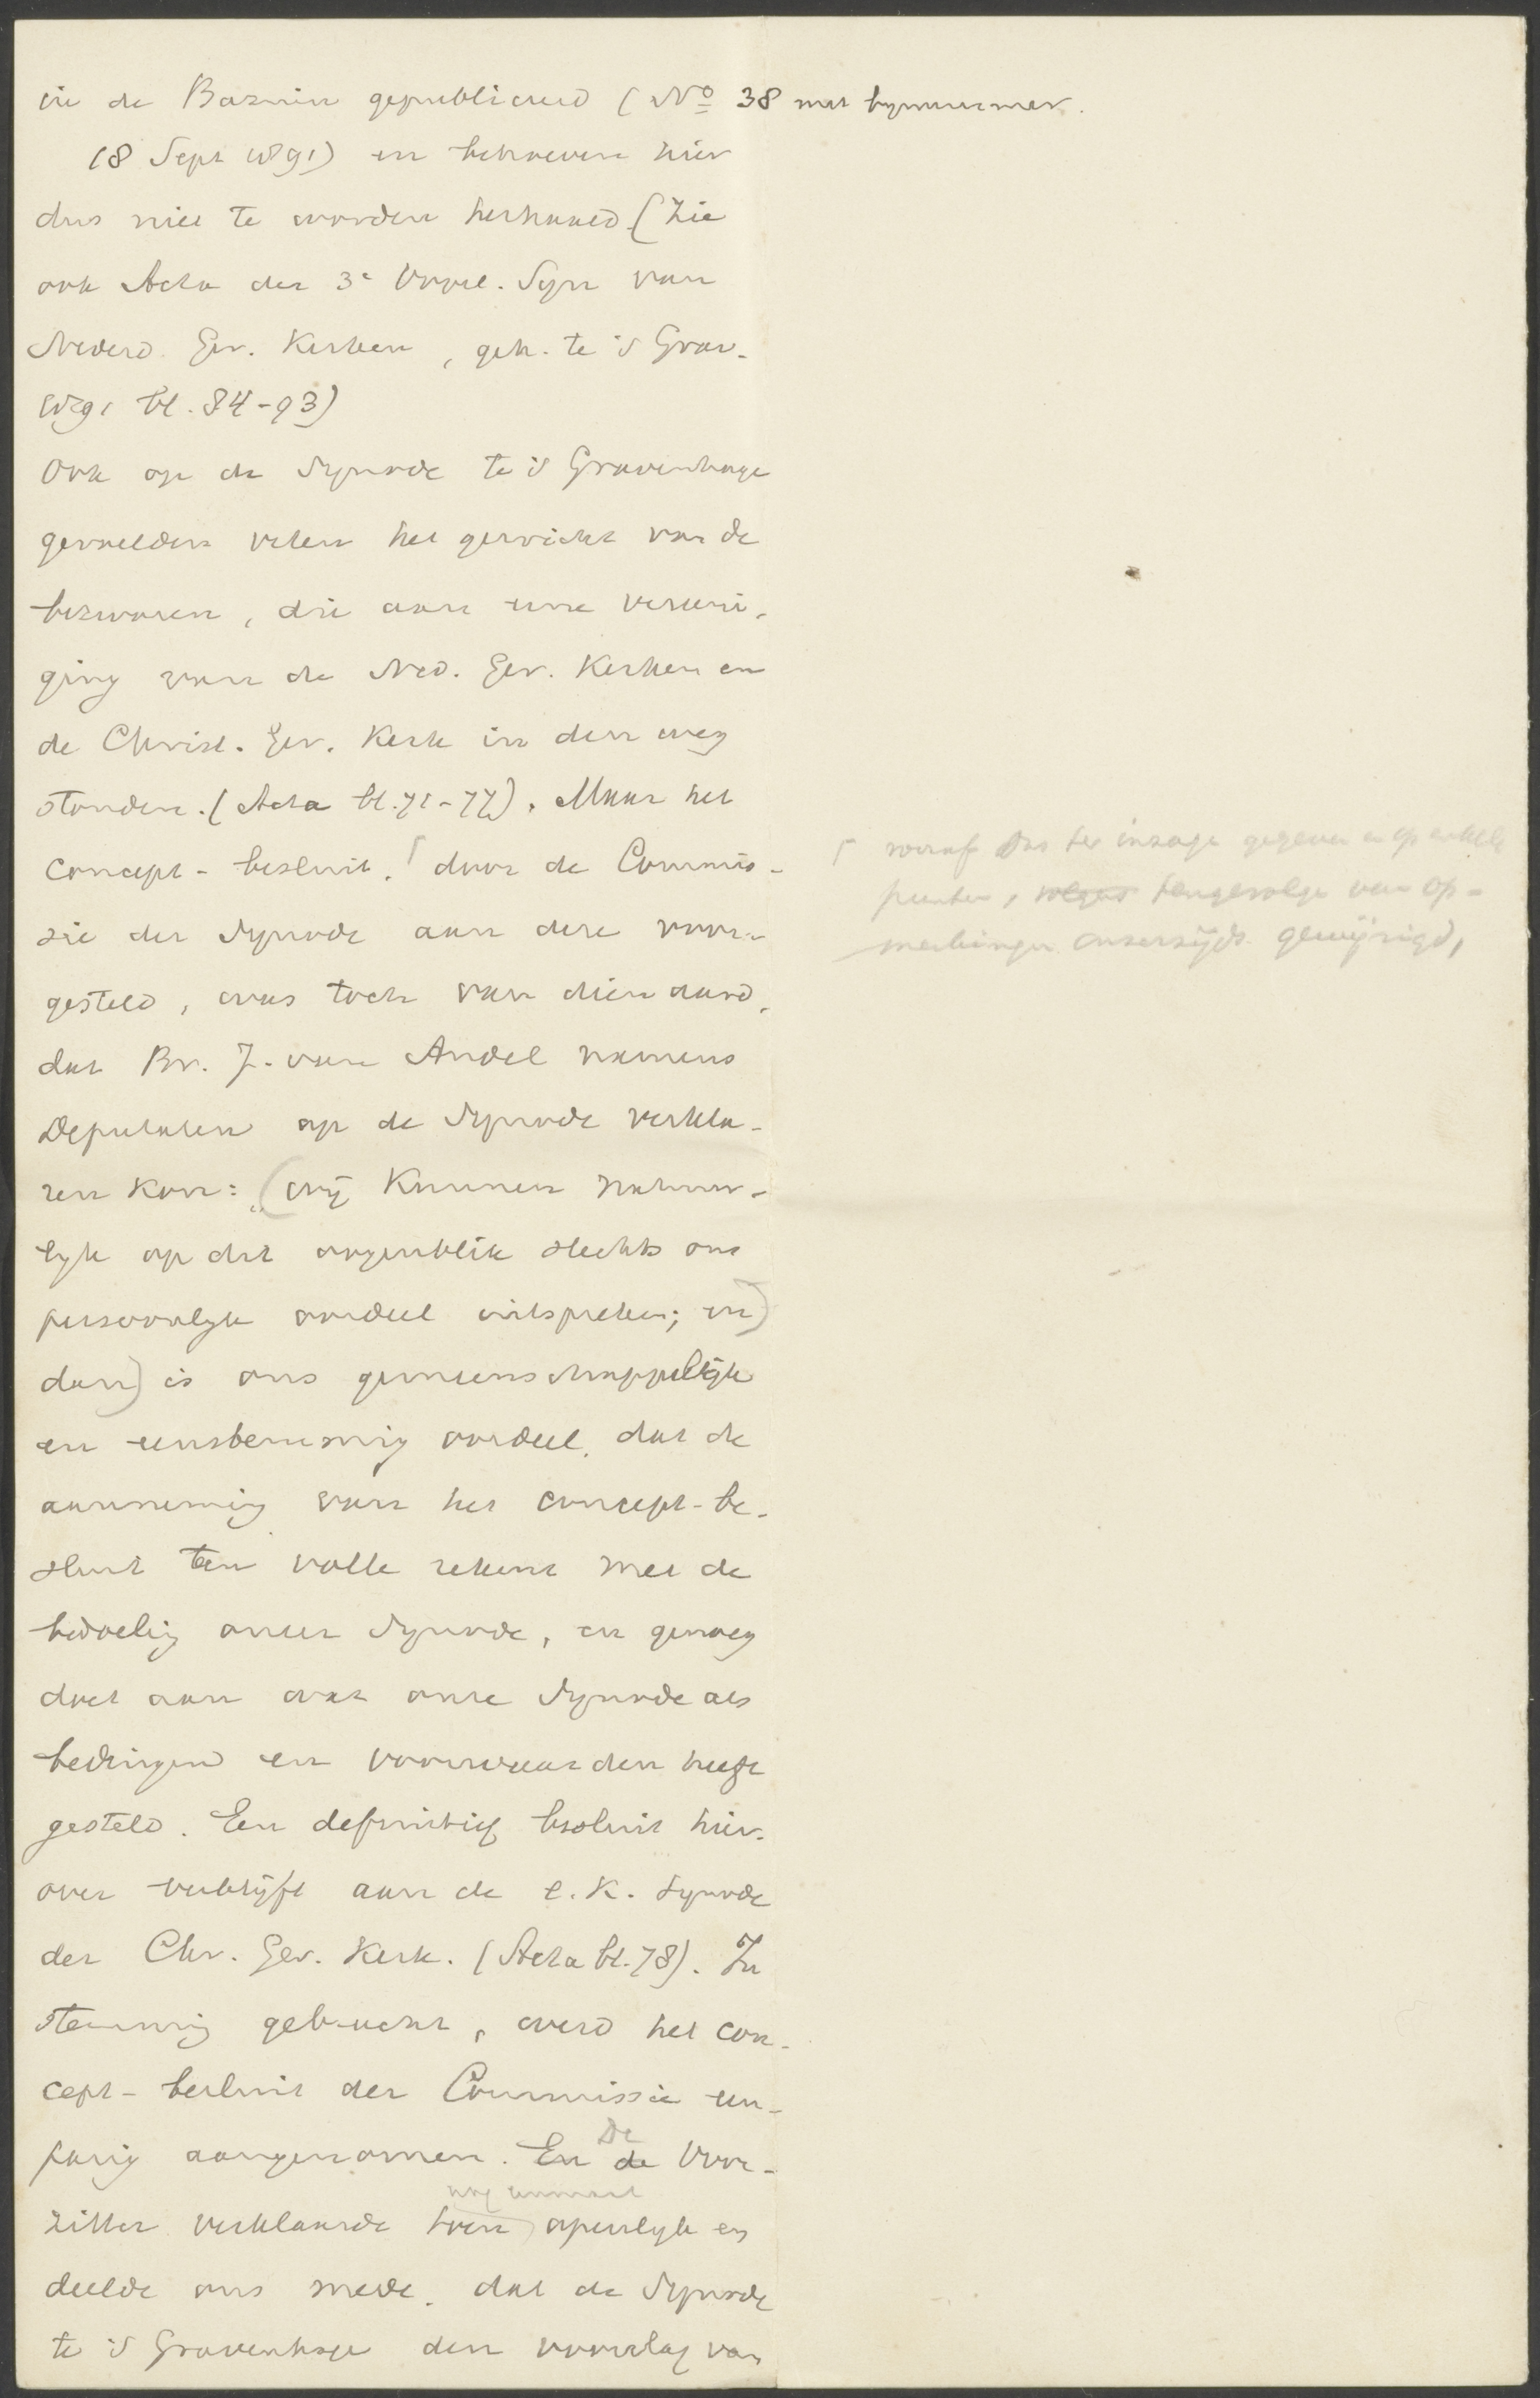 in de Bazuin gepubliceerd (No 38 met bynummer.
18 Sept 1891) en behoeven hier
dus niet te worden herhaald (Zie
ook Acta der 3e Voorl. Syn van
Nederd. Ger. Kerken, geh. te 's Grav.
1891 bl. 84-93)
Ook op de Synode te 's Gravenhage
gevoelden velen het gewicht van de
bezwaren, die aan eene vereeni-
ging van de Ned. Ger. Kerken en
de Christ. Ger. Kerk in den weg
stonden. (Acta bl. 71-77). Maar het
concept-besluit, ⌈ door de Commis-
sie der Synode aan deze voor-
gesteld, was toch van dien aard,
dat Br. J. van Andel namens
Deputaten op de Synode verkla-
ren kon: „(wij kunnen natuur-
lyk op dit oogenblik slechts ons
persoonlyk oordeel uitspreken; en)
dan) is ons gemeenschappelijk
en eenstemmig oordeel, dat de
aanneming van het concept-be-
sluit ten volle rekent met de
bedoeling onzer Synode, en genoeg
doet aan wat onze Synode als
bedingen en voorwaarden heeft
gesteld. Een definitief besluit hier-
over verblijft aan de e.k. Synode
der Chr. Ger. Kerk. (Acta bl. 78). In
stemming gebracht, werd het con-
cept-besluit der Commissie een-
parig aangenomen. En de De Voor-
zitter verklaarde toen nog eenmaal openlyk en
deelde ons mede, dat de Synode
te 's Gravenhage den voorslag van
⌈ vooraf ons ter inzage gegeven en op enkele
punten, volgens tengevolge van op-
merkingen onzerzijds gewijzigd,